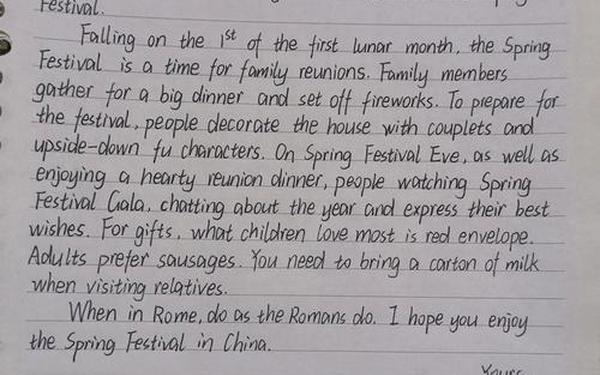 Festival.
Falling on the 1st of the first lunar month, the Spring
Festival is a time for family reunions. Family members
gather for a big dinner and set off fireworks. To prepare for
the festival, people decorate the house with couplets and
upside-down fu characters. On Spring Festival Eve, as well as
enjoying a hearty reunion dinner, people watching Spring
Festival Gala, chatting about the year and express their best
wishes. For gifts, what children love most is red envelope.
Adults prefer sausages. You need to bring a carton of milk
when visiting relatives.
When in Rome, do as the Romans do. I hope you enjoy
the Spring Festival in China.
Yours